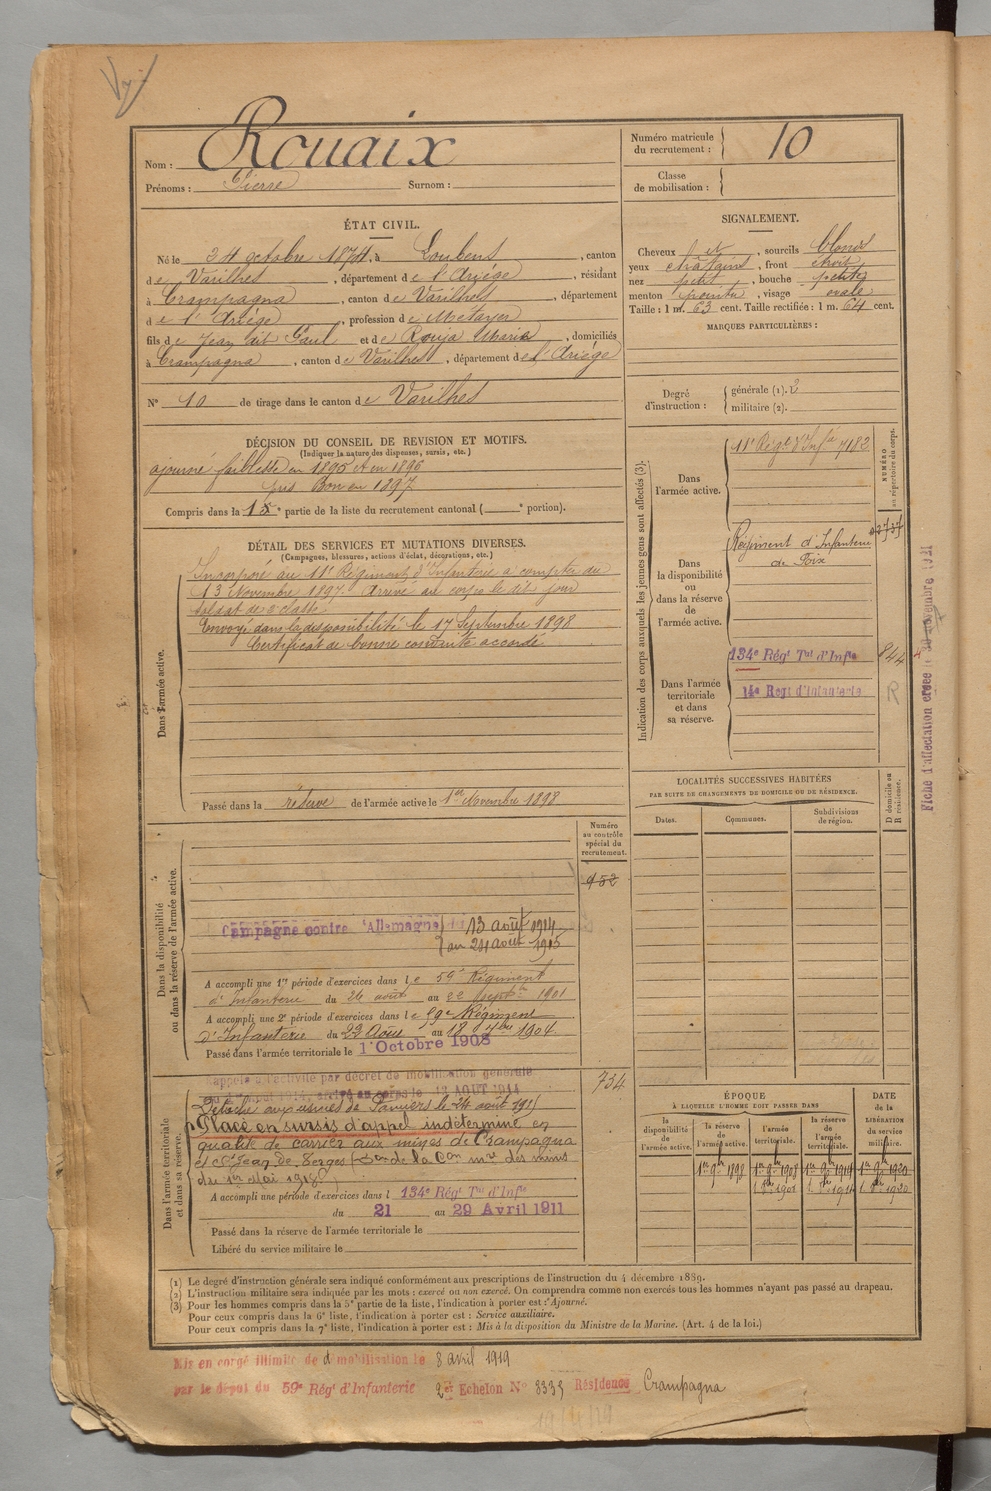 Nom : Rouaix
Prénoms : Pierre Surnom :
Numéro matricule du recrutement : 10
Classe de mobilisation :
ÉTAT CIVIL.
Né le 24 octobre 1874, à Loubens, canton
de Varilhes, département de l'Ariège, résidant
à Crampagna, canton de Varilhes, département
de l'Ariège, profession de Métayer
fils de Jean dit Paul et de Rouja Maria, domiciliés
à Crampagna, canton de Varilhes, département de l'Ariège
N° 10 de tirage dans le canton de Varilhes
SIGNALEMENT.
Cheveux et, sourcils blonds
yeux chatains, front étroit
nez petit, bouche petite
menton pointu, visage ovale
Taille : 1 m. 63 cent. Taille rectifiée : 1 m. 64 cent.
MARQUES PARTICULIÈRES :
Degré d'instruction : générale (1). 2
militaire (2).
DÉCISION DU CONSEIL DE REVISION ET MOTIFS.
(Indiquer la nature des dispenses, sursis, etc.)
ajourné faiblesse en 1895 et en 1896
Bon en 1897
Compris dans la 1e partie de la liste du recrutement cantonal ( e portion).
DÉTAIL DES SERVICES ET MUTATIONS DIVERSES.
(Campagnes, blessures, actions d'éclat, décorations, etc.)
Dans l'armée active.
Incorporé au 11e Régiment d'Infanterie à compter du
13 Novembre 1897. Arrivé au corps le dit jour
soldat de 2e classe.
Envoyé dans la disponibilité le 17 Septembre 1898
Certificat de bonne conduite accordé
Passé dans la réserve de l'armée active le 1er Novembre 1898
Indication des corps auxquels les jeunes gens sont affectés (3).
NUMÉRO au répertoire du corps.
Dans l'armée active.
11e Régt d'Infie 7182
Dans la disponibilité ou dans la réserve de l'armée active.
Régiment d'Infanterie
de Foix
Dans l'armée territoriale et dans sa réserve.
134e Régt Tal d'Infie 844
14e Regt d'Infanterie R
Fiche d'affectation créée le 30 novembre 1931
LOCALITÉS SUCCESSIVES HABITÉES
PAR SUITE DE CHANGEMENTS DE DOMICILE OU DE RÉSIDENCE.
Dates. Communes. Subdivisions de région. D domicile ou R résidence.
Dans la disponibilité ou dans la réserve de l'armée active.
Numéro au contrôle spécial du recrutement.
952
Campagne contre l'Allemagne du 13 août 1914
au 24 août 1915
A accompli une 1re période d'exercices dans le 59e Régiment
d'Infanterie du 26 août au 22 septbre 1901
A accompli une 2e période d'exercices dans le 59e Régiment
d'Infanterie du 22 Août au 18 7bre 1904
Passé dans l'armée territoriale le 1er Octobre 1908
Dans l'armée territoriale et dans sa réserve.
734
Rappelé à l'activité par décret de mobilisation générale
du 1er août 1914, arrivé au corps le 13 AOUT 1914
Détaché aux usines de Pamiers le 24 août 1915
Placé en sursis d'appel indéterminé en
qualité de carrier aux mines de Crampagna
et St Jean de Verges
du 1er Mai 1918
A accompli une période d'exercices dans l 134e Régt Tal d'Infie
du 21 au 29 Avril 1911
Passé dans la réserve de l'armée territoriale le
Libéré du service militaire le
ÉPOQUE
À LAQUELLE L'HOMME DOIT PASSER DANS
la disponibilité de l'armée active. la réserve de l'armée active. l'armée territoriale. la réserve de l'armée territoriale. DATE de la LIBÉRATION du service militaire.
1er 9bre 1898 1er 9bre 1908 1er 9bre 1914 1er 9bre 1920
(1) Le degré d'instruction générale sera indiqué conformément aux prescriptions de l'instruction du 4 décembre 1889.
(2) L'instruction militaire sera indiquée par les mots : exercé ou non exercé. On comprendra comme non exercés tous les hommes n'ayant pas passé au drapeau.
(3) Pour les hommes compris dans la 5e partie de la liste, l'indication à porter est : Ajourné.
Pour ceux compris dans la 6e liste, l'indication à porter est : Service auxiliaire.
Pour ceux compris dans la 7e liste, l'indication à porter est : Mis à la disposition du Ministre de la Marine. (Art. 4 de la loi.)
Mis en congé illimité de démobilisation le 8 avril 1919
par le dépôt du 59e Régt d'Infanterie 2e Echelon N° 8335 Résidence Crampagna